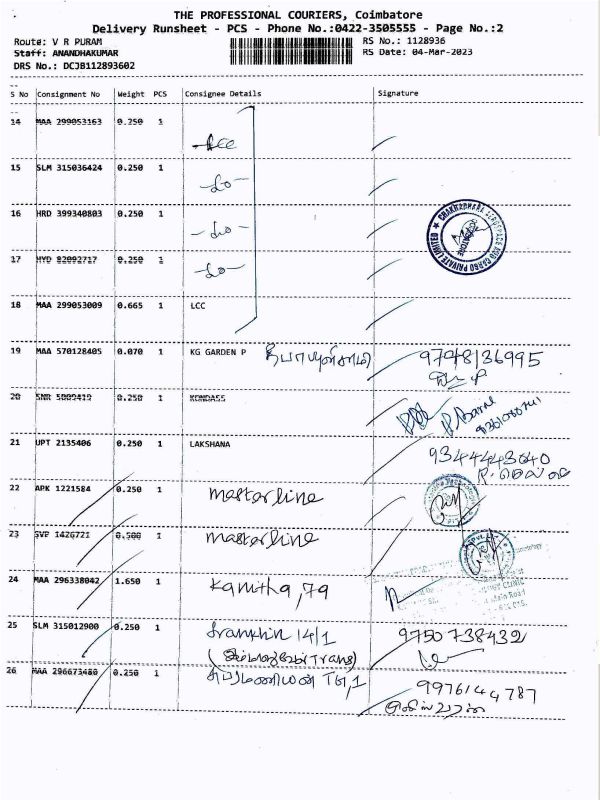 THE PROFESSIONAL COURIERS, Coimbatore
Delivery Runsheet - PCS - Phone No.:0422-3505555 - Page No.:2
Route: V R PURAM RS No.: 1128936
Staff: ANANDHAKUMAR RS Date: 04-Mar-2023
DRS No.: DCJB112893602
S No Consignment No Weight PCS Consignee Details Signature
14 MAA 299053163 0.250 1
15 SLM 315036424 0.250 1 -do-
16 HRD 399340803 0.250 1 -do-
17 HYD 82092717 0.250 1 -do-
18 MAA 299053009 0.665 1 LCC
19 MAA 570128405 0.070 1 KG GARDEN P 9748136995
20 SNR 5009419 0.250 1 KONDASS
21 UPT 2135406 0.250 1 LAKSHANA 9344443040
22 APK 1221584 0.250 1 masterline
23 SVP 1426721 0.500 1 masterline
24 MAA 296338042 1.650 1 Kavitha, 79
25 SLM 315012900 0.250 1 Franklin 14/1 9750738432
26 MAA 296673480 0.250 1 சுப்ரமணியன் 9976144787